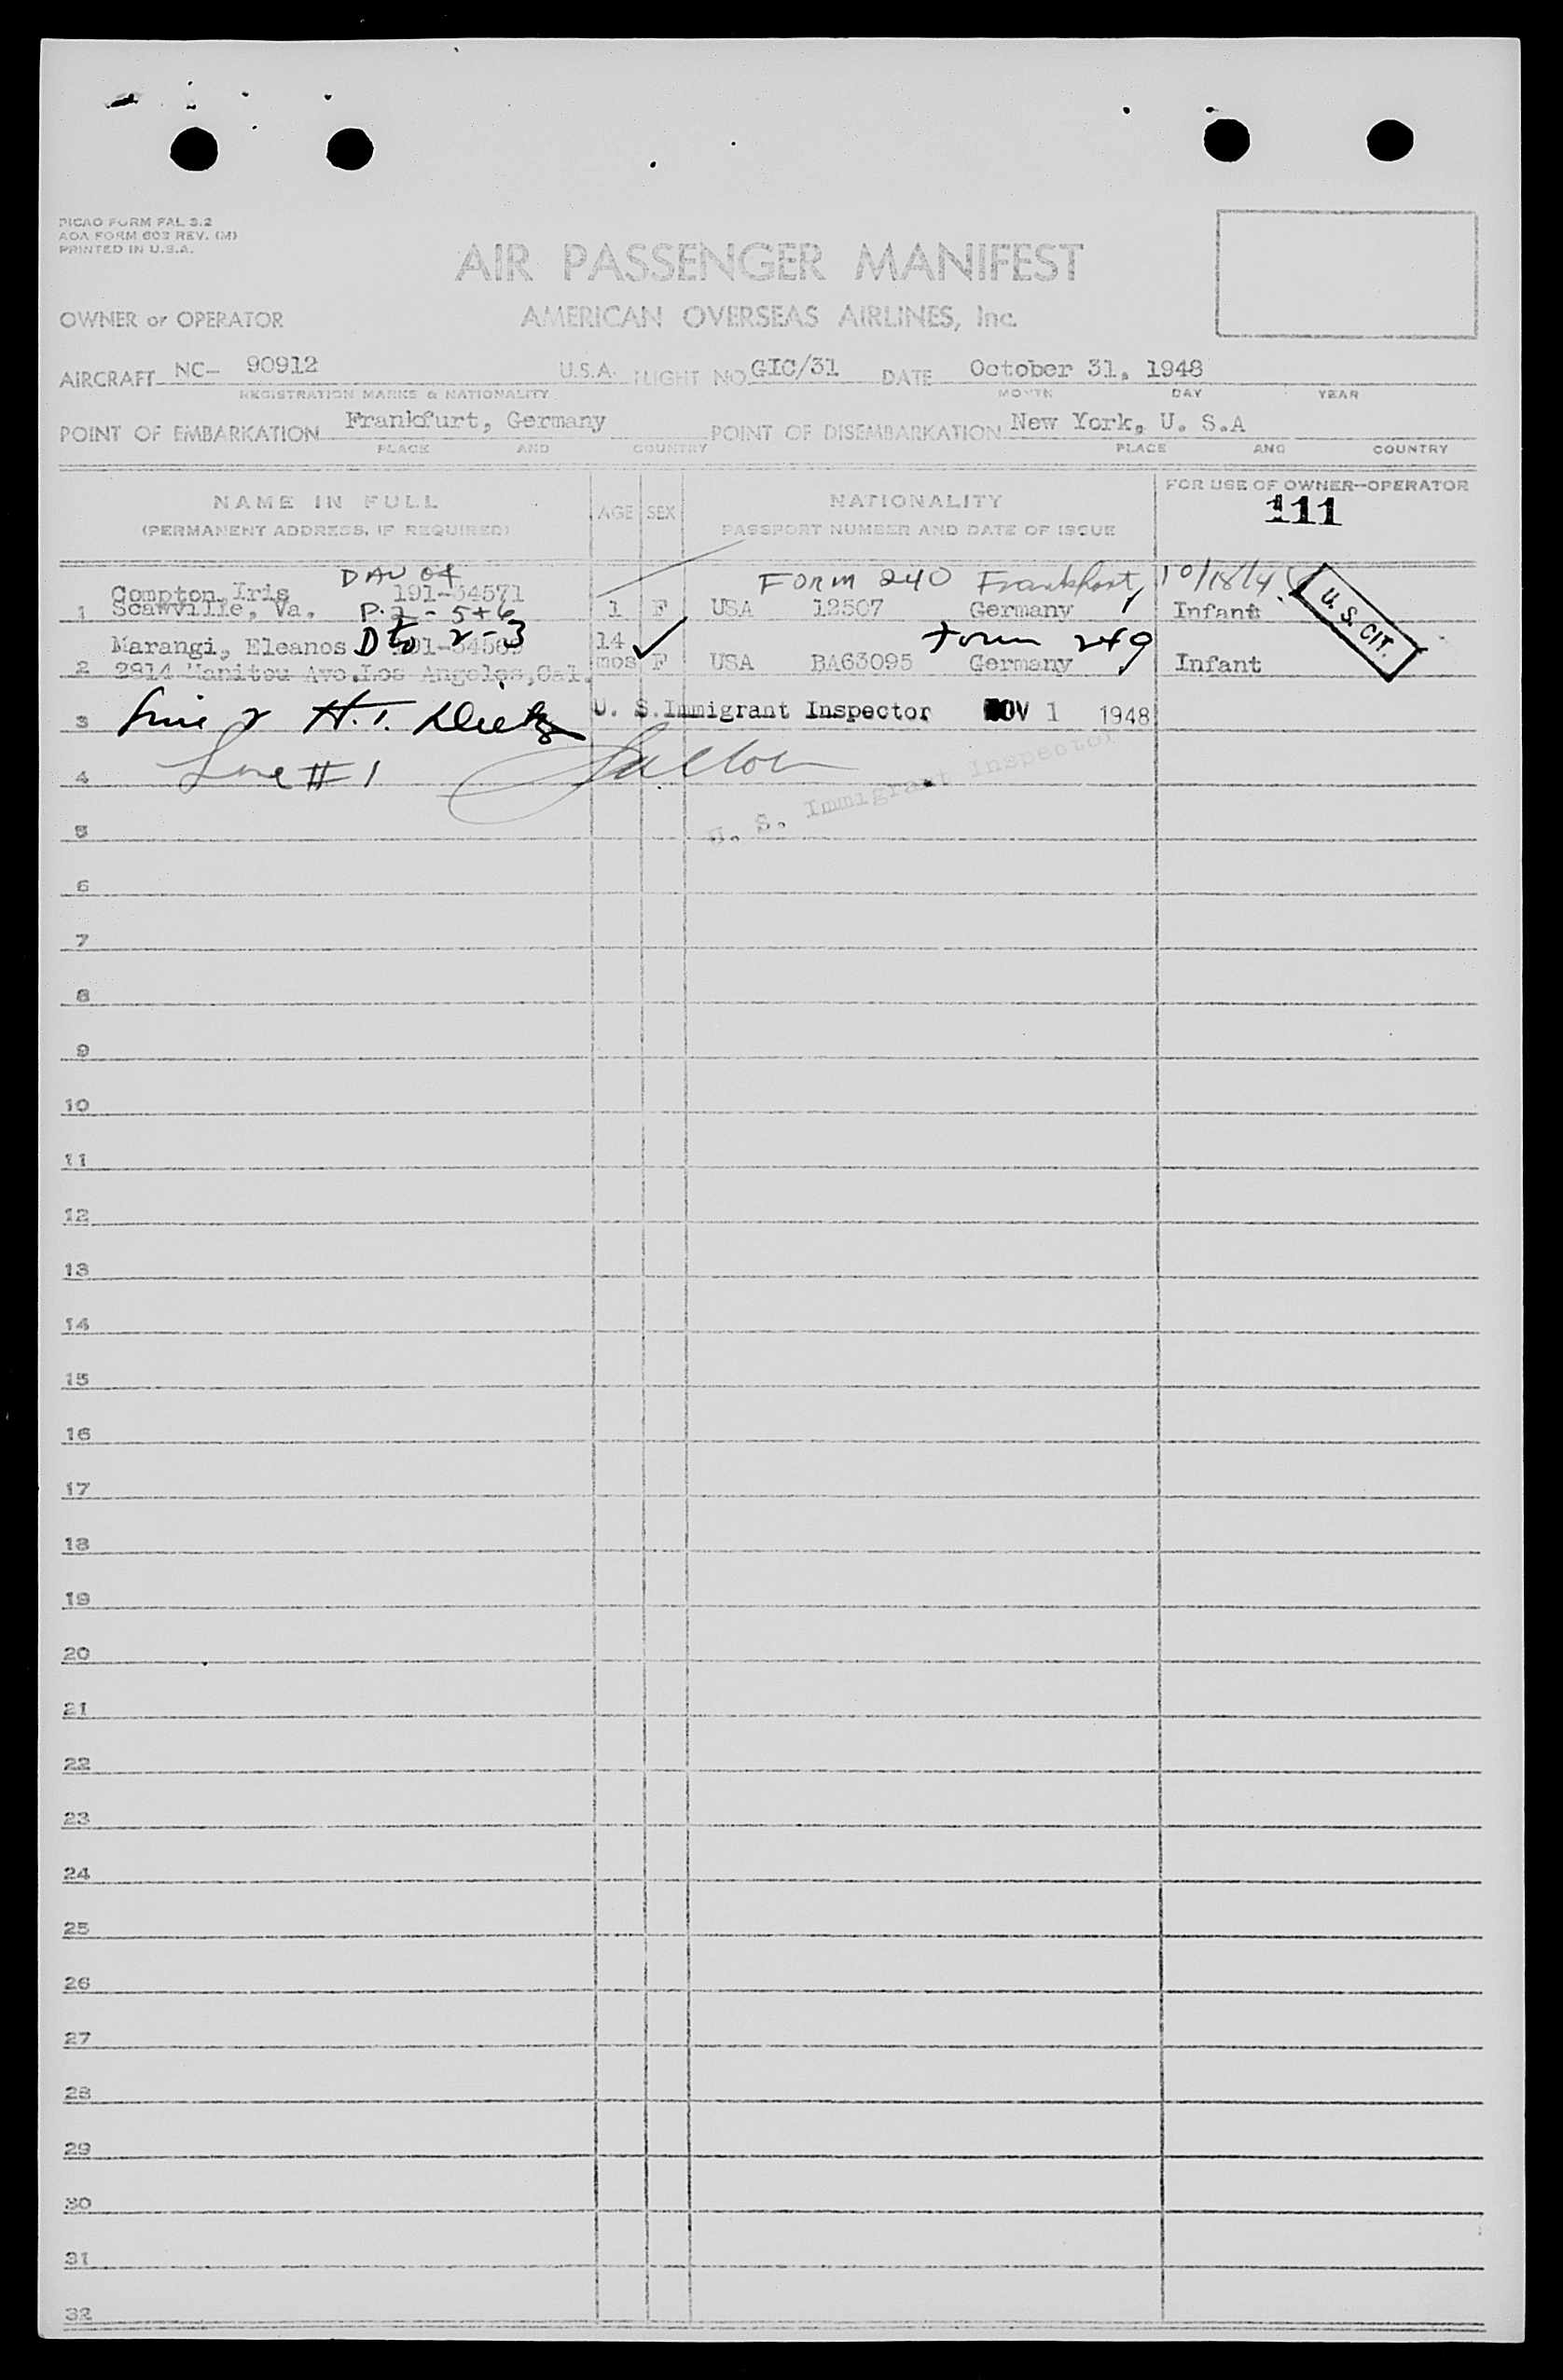 PICAO FORM FAL 3.2
AOA FORM 603 REV. (M)
PRINTED IN U.S.A.
AIR PASSENGER MANIFEST
OWNER or OPERATOR AMERICAN OVERSEAS AIRLINES, Inc.
AIRCRAFT NC- 90912 U.S.A. FLIGHT NO. GIC/31 DATE October 31, 1948
REGISTRATION MARKS & NATIONALITY MONTH DAY YEAR
POINT OF EMBARKATION Frankfurt, Germany POINT OF DISEMBARKATION New York, U. S.A
PLACE AND COUNTRY PLACE AND COUNTRY
NAME IN FULL AGE SEX NATIONALITY FOR USE OF OWNER-OPERATOR
(PERMANENT ADDRESS, IF REQUIRED) PASSPORT NUMBER AND DATE OF ISSUE 111
DAU of Form 240 Frankfort, 10/18/4
Compton, Iris 191-34571
1 Va. P. 2 - 5+6 1 F USA 12507 Germany Infant U. S. CIT.
Marangi, Eleanos D to 2-3 14 Form 240
2 2814 Manitou Ave. Los Angeles, Cal. mos F USA BA63095 Germany Infant
3 Line 2 H.T. U. S. Immigrant Inspector NOV 1 1948
4 Line # 1
U. S. Immigrant Inspector
5
6
7
8
9
10
11
12
13
14
15
16
17
18
19
20
21
22
23
24
25
26
27
28
29
30
31
32